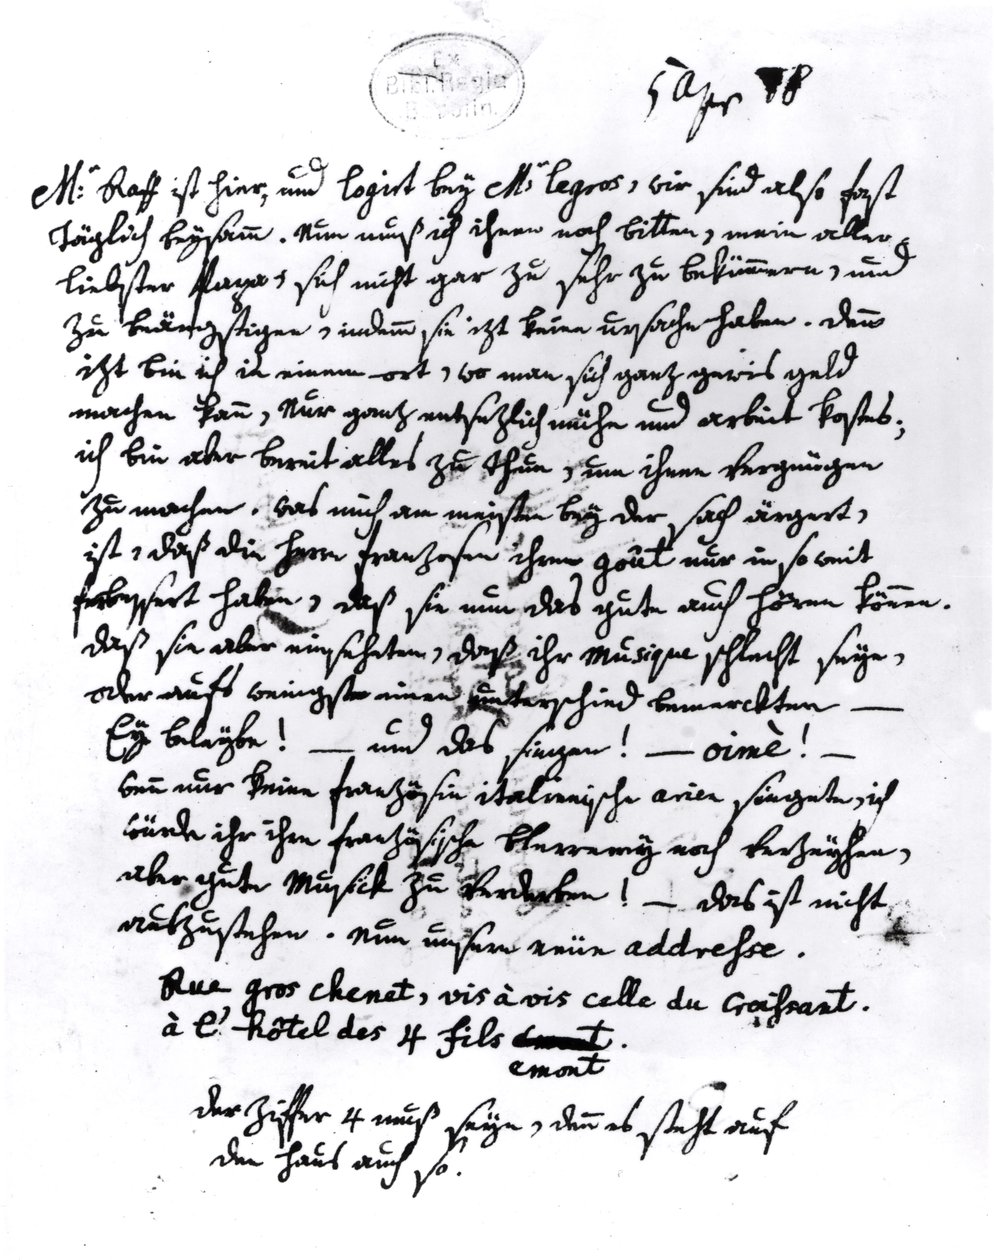 Ex
Bibl. Regia
Berolin.
5 Apr 78
Mr: Raff ist hier, und logirt bey Mr: legros, wir sind also fast
täglich beysam̅. Nun muß ich ihnen noch bitten, mein aller=
liebster Papa, sich nicht gar zu sehr zu bekümmern, und
zu beängstigen, indem̅ sie izt keine ursache haben. denn
izt bin ich in einem ort, wo man sich ganz gewis geld
machen kan̅, Nur ganz entsezlich mühe und arbeit kostes;
ich bin aber bereit alles zu thun, um ihnen vergnügen
zu machen. was mich am meisten bey der sach ärgert,
ist, daß die herrn franzosen ihren goût nur in so weit
verbessert haben, daß sie nun das gute auch hören kön̅en.
daß sie aber einseheten, daß ihr Musique schlecht seye,
oder aufs wenigste einen unterschied bemerckten —
Ey beleybe! — und das singen! — oimè! —
wen̅ nur keine französin italienische arien singete, ich
würde ihr ihre französische Plererey noch verzeyhen,
aber gute Musick zu verderben! — das ist nicht
auszustehen. Nun unsere neüe addresse.
Rue gros chenet, vis à vis celle du Croissant.
à l'hôtel des 4 fils .
emont
der ziffer 4 muß seyn, den̅ es steht auf
den haus auch so.